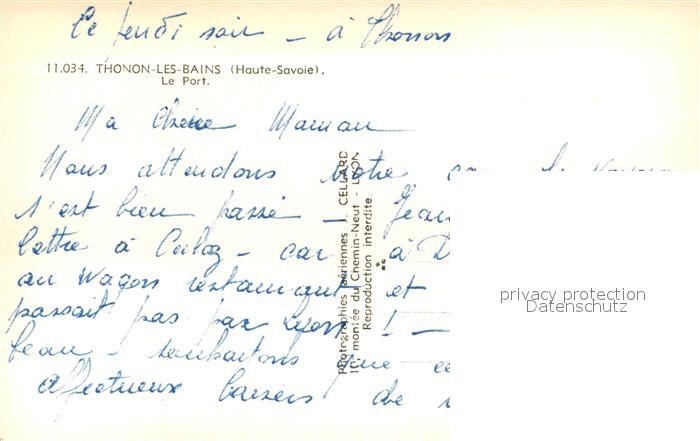 Ce jeudi soir — à Thonon
11.034. THONON-LES-BAINS (Haute-Savoie).
Le Port.
Ma chère Maman
Nous attendons votre
s'est bien passé — Jean
lettre à Culoz — car à D
au wagon restaurant et
passait pas par Lyon ! —
beau — souhaitons que ce
affectueux baisers de
Photographies aériennes J. CELLARD
10, montée du Chemin-Neuf - LYON
Reproduction interdite
privacy protection
Datenschutz